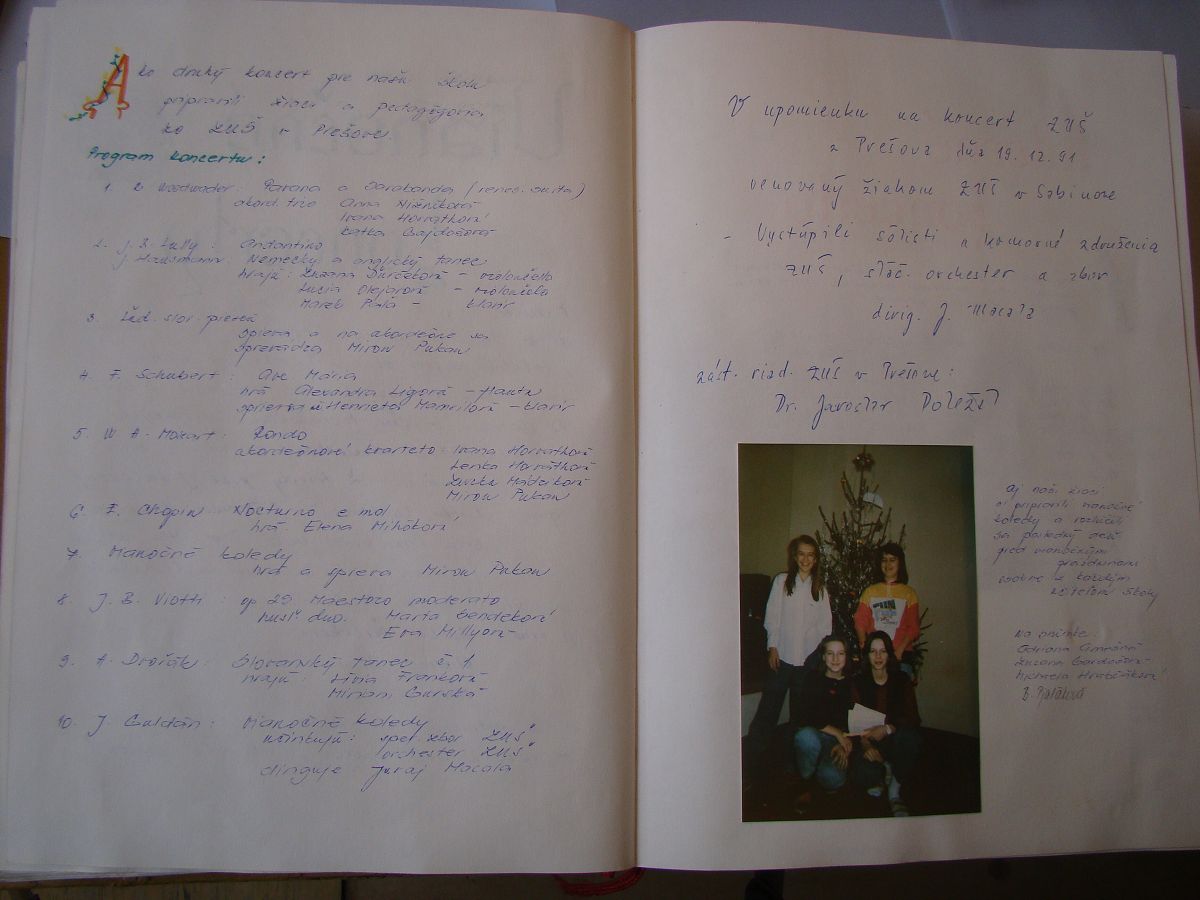 Ako druhý koncert pre našu školu
pripravili žiaci a pedagógovia
zo ZUŠ v Prešove
Program koncertu:
1. Pavana a Sarabanda (renes. suita)
akord. trio Anna Nižníková
Ivana Horváthová
Katka Gajdošová
2. J. B. Lully: Andantino
J. Hausmann: Nemecký a anglický tanec
hrajú: Zuzana Ďurčeková - violončelo
Lucia Olejarová - violončelo
Marek Piaček - klavír
3. Ľud. slov. pieseň
Spieva a na akordeóne sa
sprevádza Miron Pukan
4. F. Schubert: Ave Mária
hrá Alexandra Ligová - flauta
sprievod Henrieta Hamrilová - klavír
5. W. A. Mozart: Rondo
akordeónové kvarteto Ivana Horváthová
Lenka Horváthová
Zuzka Hadzíková
Miron Pukan
6. F. Chopin Nocturno e mol
hrá Elena Miháková
7. Vianočné koledy
hrá a spieva Miron Pukan
8. J. B. Viotti: op 29 Maestozo moderato
husľ. duo. Marta Bendeková
Eva Millyová
9. A. Dvořák: Slovanský tanec č. 1
hrajú: Lívia Franková
Miriam Gurská
10. J. Guldán: Vianočné koledy
účinkujú: spev. zbor ZUŠ
orchester ZUŠ
diriguje Juraj Macala
V upomienku na koncert ZUŠ
z Prešova dňa 19. 12. 91
venovaný žiakom ZUŠ v Sabinove
- Vystúpili sólisti a komorné združenia
ZUŠ, sláč. orchester a zbor
dirig. J. Macala
zást. riad. ZUŠ v Prešove:
Dr. Jaroslav Doležal
Aj naši žiaci
si pripravili vianočné
koledy a rozlúčili
sa posledný deň
pred vianočnými
prázdninami
osobne s každým
učiteľom školy
Na snímke:
Adriana
Zuzana
Michaela Hrabčáková
B.